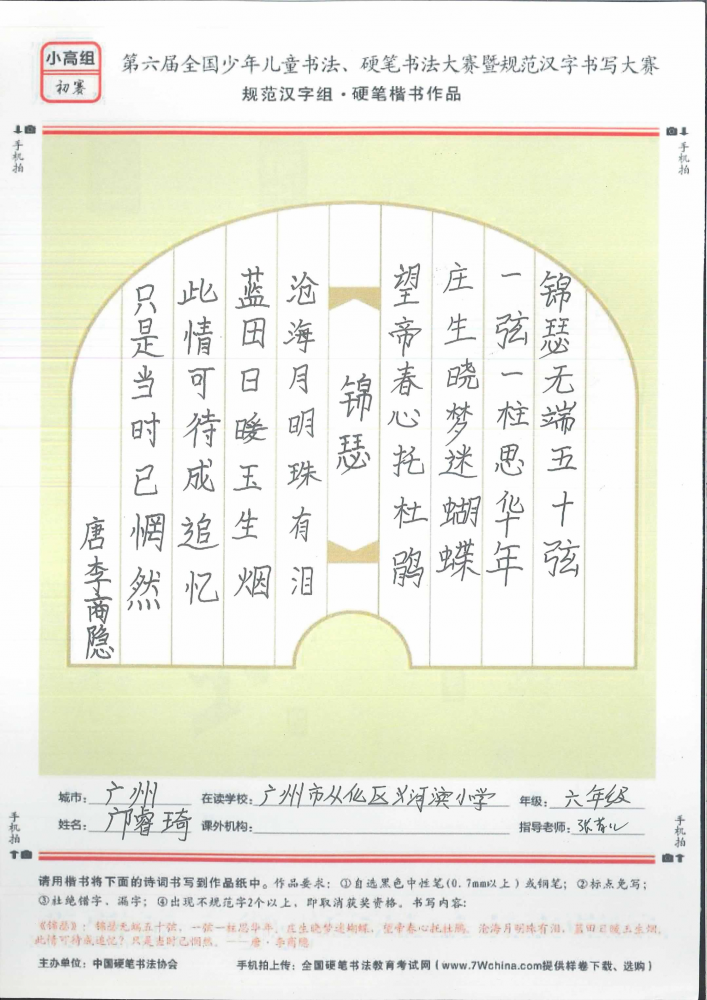 小高组
初赛
第六届全国少年儿童书法、硬笔书法大赛暨规范汉字书写大赛
规范汉字组·硬笔楷书作品
手机拍
手机拍
锦瑟无端五十弦
一弦一柱思华年
庄生晓梦迷蝴蝶
望帝春心托杜鹃
锦瑟
沧海月明珠有泪
蓝田日暖玉生烟
此情可待成追忆
只是当时已惘然
唐李商隐
手机拍
手机拍
城市：广州 在读学校：广州市从化区河滨小学 年级：六年级
姓名：邝睿琦 课外机构： 指导老师：张
请用楷书将下面的诗词书写到作品纸中。作品要求：①自选黑色中性笔(0.7mm以上)或钢笔；②标点免写；
③杜绝错字、漏字；④出现不规范字2个以上，即取消获奖资格。书写内容：
《锦瑟》：锦瑟无端五十弦，一弦一柱思华年。庄生晓梦迷蝴蝶，望帝春心托杜鹃。沧海月明珠有泪，蓝田日暖玉生烟。
此情可待成追忆？只是当时已惘然。——唐·李商隐
主办单位：中国硬笔书法协会 手机拍上传：全国硬笔书法教育考试网（www.7Wchina.com提供样卷下载、选购）